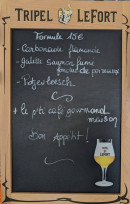 TRIPEL LEFORT
Formule 15€
- Carbonade flamande
- galette Saumon fumé
fondant de poireaux
- Potjevleesch
+ le p'tit café gourmand
maison
Bon Appétit !
LEFORT